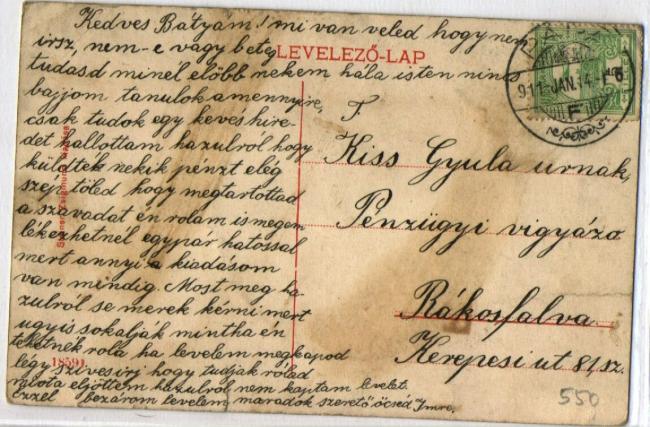 Kedves Bátyám! mi van veled hogy nem
irsz, nem-e vagy beteg
LEVELEZŐ-LAP
tudasd minél elöbb nekem hála isten nincs
bajjom tanulok amennyire,
csak tudok egy kevés hire-
det hallottam hazulról hogy
küldték nekik pénzt elég
szép töled hogy megtartottad
a szavadat én rolam is megem
lékezhetnél egypár hatossal
mert annyi a kiadásom
van mindig. Most meg ha
zulról se merek kérni mert
ugyis sokalják mintha én
tehetnék rola ha levelem megkapod
légy szives irj hogy tudjak rolad
mióta eljöttem hazulról nem kaptam levelet.
Ezzel bezárom levelem maradok szerető öcséd Imre,
18591
911 JAN. 14
F
F.
Kiss Gyula urnak,
Penzügyi vigyázo
Rákosfalva.
Kerepesi ut 81 sz.
550